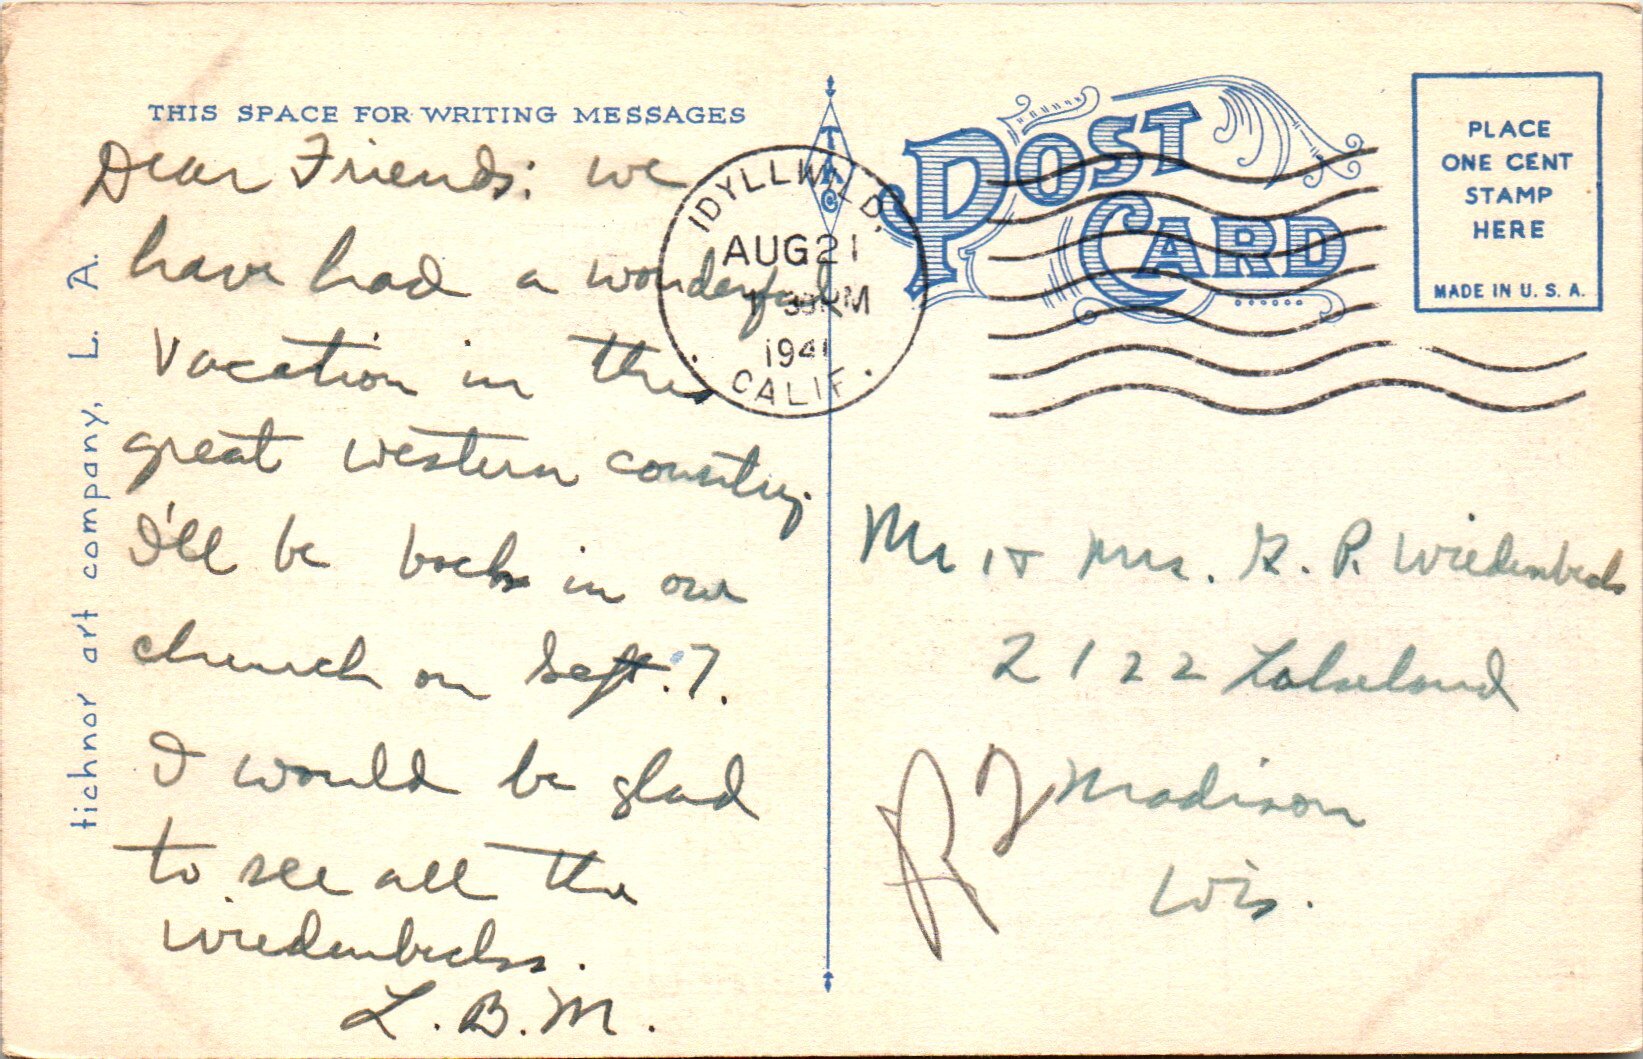 THIS SPACE FOR WRITING MESSAGES
Dear Friends: we
have had a wonderful
Vacation in this
great western country.
I'll be back in our
church on Sept. 7.
I would be glad
to see all the
Wiedenbecks.
L. B. M.
tichnor art company, L. A.
IDYLLWILD.
AUG 21
30 PM
1941
CALIF.
POST CARD
PLACE
ONE CENT
STAMP
HERE
MADE IN U. S. A.
Mr & Mrs. G. P. Wiedenbeck
2122 Lakeland
Madison
Wis.